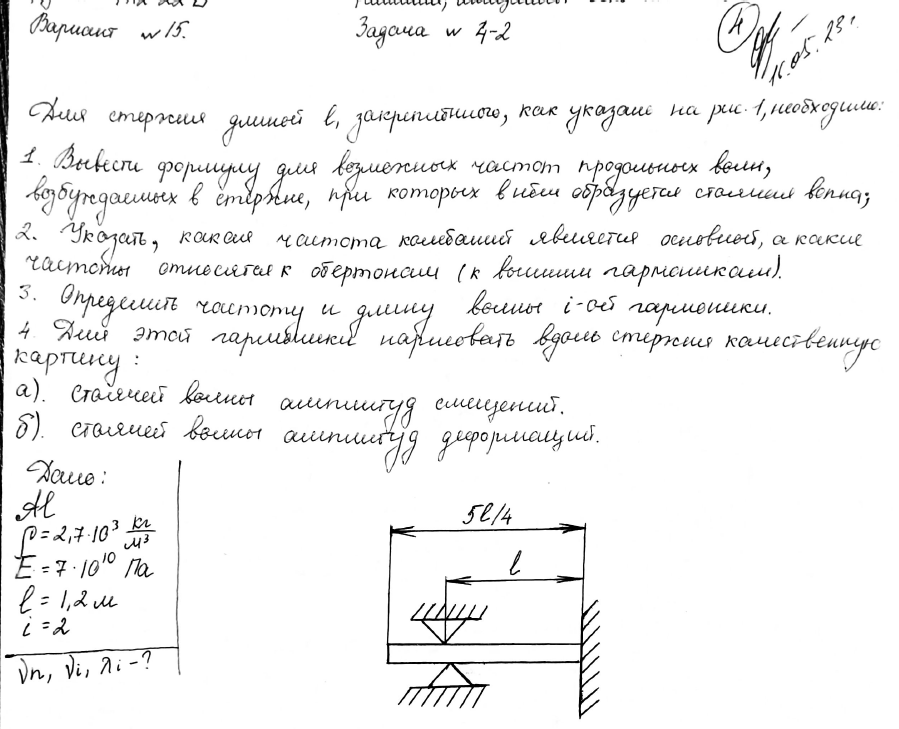 Вариант №15.
Задача №4-2
4
16.05.23г.
Для стержня длиной l, закреплённого, как указано на рис. 1, необходимо:
1. Вывести формулу для возможных частот продольных волн,
возбуждаемых в стержне, при которых в нём образуется стоячая волна;
2. Указать, какая частота колебаний является основной, а какие
частоты относятся к обертонам (к высшим гармоникам).
3. Определить частоту и длину волны i-ой гармоники.
4. Для этой гармоники нарисовать вдоль стержня качественную
картину:
а). стоячей волны амплитуд смещений.
б). стоячей волны амплитуд деформаций.
Дано:
Al
ρ = 2,7·10³ кг/м³
E = 7·10¹⁰ Па
l = 1,2 м
i = 2
νn, νi, λi - ?
5l/4
l